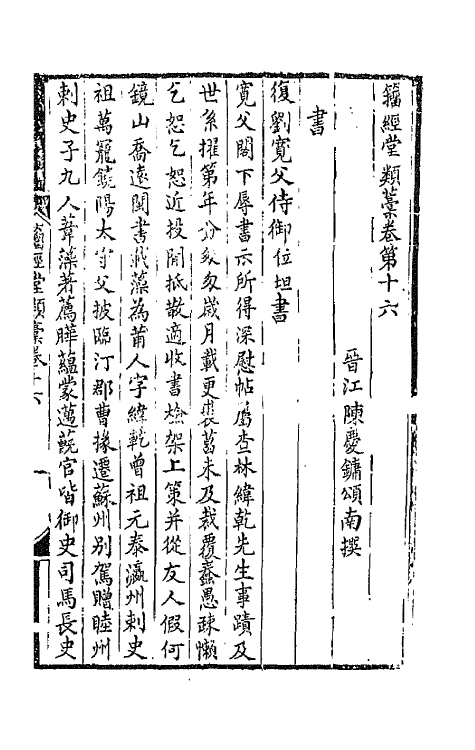 籀經堂類藁卷第十六
晉江陳慶鏞頌南撰
書
復劉寬父侍御位坦書
寬父閣下辱書示所得深慰帖屬查林緯乾先生事蹟及
世系擢第年分匆匆歲月載更裘葛未及裁覆蠢愚疎懶
乞恕乞恕近投閒抵散適收書檢架上策并從友人假何
鏡山喬遠閩書滅藻為莆人字緯乾曾祖元泰瀛州刺史
祖萬寵饒陽太守父披臨汀郡曹掾遷蘇州別駕贈睦州
刺史子九人葦藻著薦曄蘊蒙邁蔇官皆御史司馬長史
籀經堂類藁卷十六
一